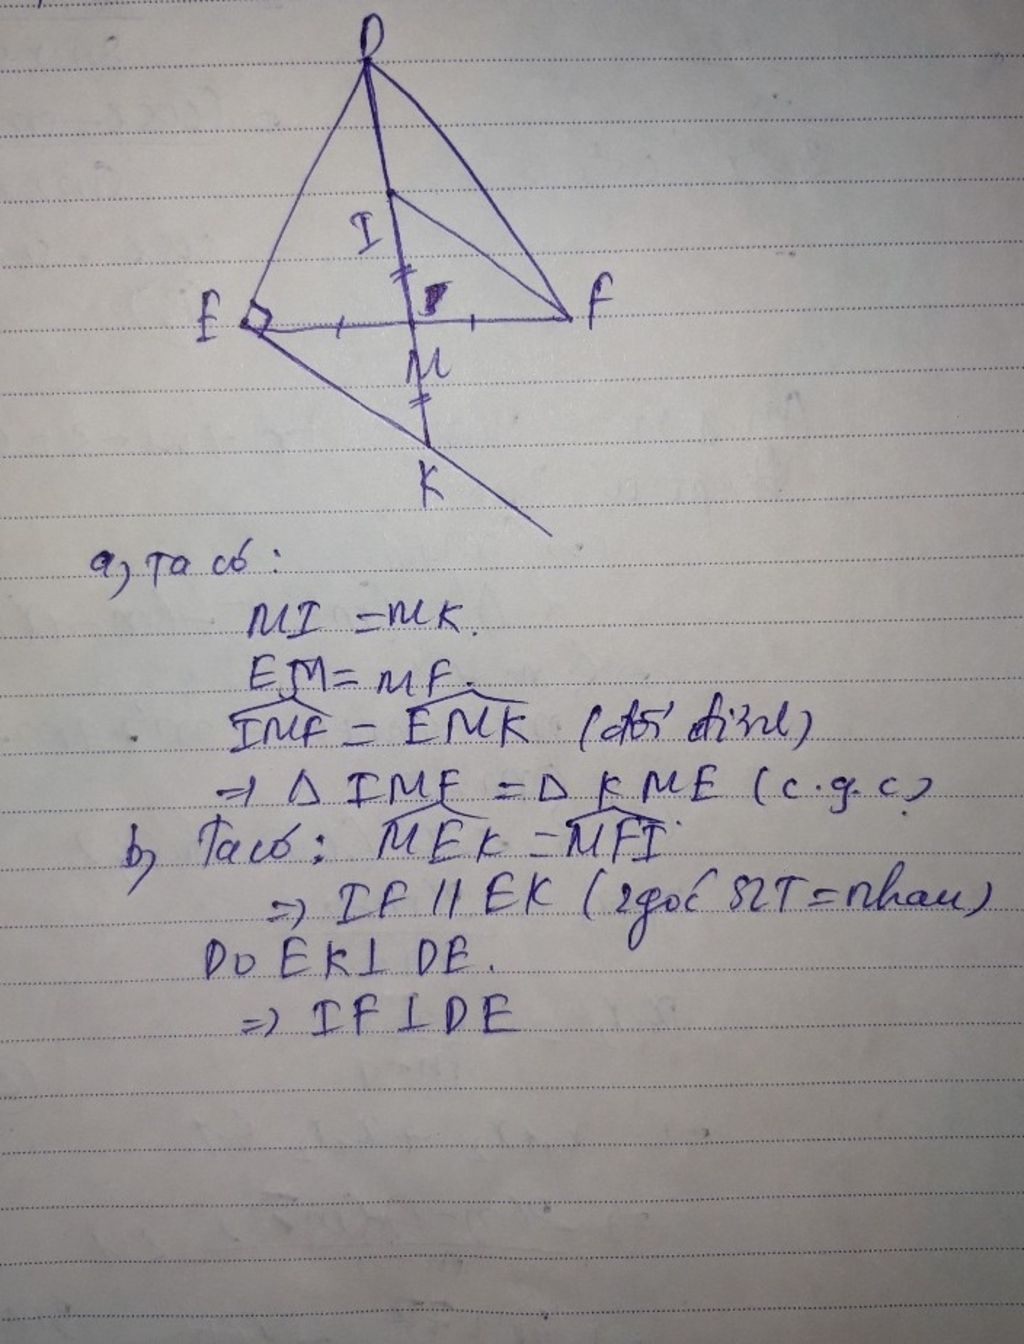 D
I
E
F
M
K
a, Ta có:
MI = MK.
EM = MF.
IMF = EMK (đối đỉnh)
=> Δ IMF = Δ KME (c.g.c)
b, Ta có: MEK = MFI
=> IF // EK (2 góc SLT = nhau)
Do EK ⊥ DE.
=> IF ⊥ DE